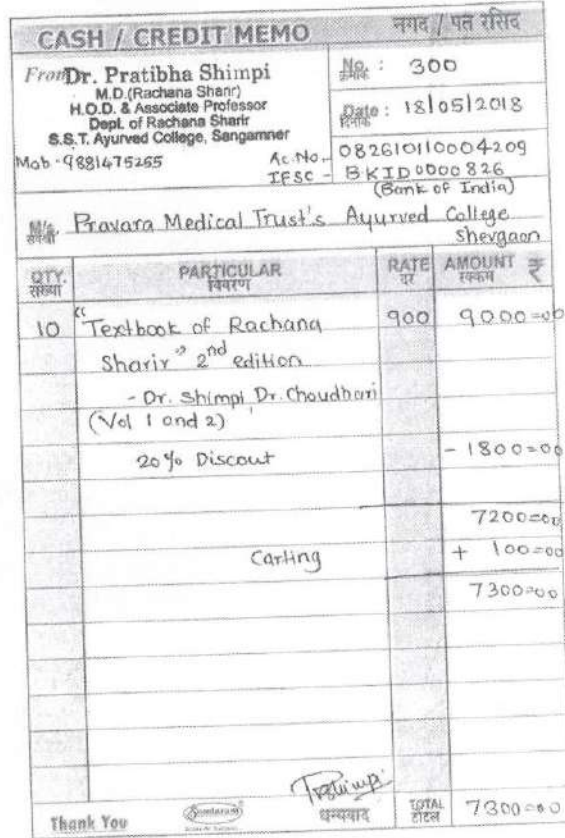 CASH / CREDIT MEMO नगद / पत रसिद
From Dr. Pratibha Shimpi
M.D.(Rachana Sharir)
H.O.D. & Associate Professor
Dept. of Rachana Sharir
S.S.T. Ayurved College, Sangamner
Mob - 9881475265
No. : 300
क्रमांक
Date : 18/05/2018
दिनांक
Ac. No. - 082610110004209
IFSC - BKID0000826
(Bank of India)
M/s. Pravara Medical Trust's Ayurved College
Shevgaon
QTY. PARTICULAR RATE AMOUNT ₹
संख्या विवरण दर रक्कम
10 "Textbook of Rachana 900 9000=00
Sharir" 2nd edition
- Dr. Shimpi Dr. Choudhari
(Vol 1 and 2)
20% Discout - 1800=00
7200=00
Carting + 100=00
7300=00
Thank You Sundaram धन्यवाद TOTAL 7300=00
टोटल